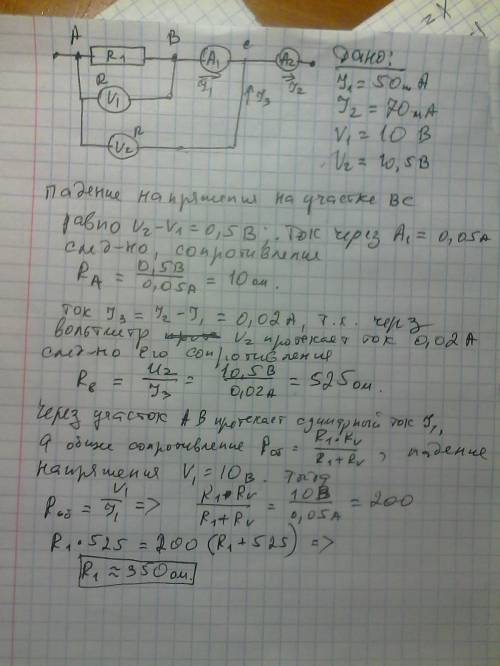 A R1 B A1 C A2
R V1
R V2
I1 I3 I2
Дано:
I1 = 50 mA
I2 = 70 mA
V1 = 10 В
V2 = 10,5 В
Падение напряжения на участке BC
равно V2 - V1 = 0,5 В. Ток через A1 = 0,05A
след-но, сопротивление
RA = 0,5В / 0,05A = 10 ом.
ток I3 = I2 - I1 = 0,02A, т.к. через
вольтметр V2 протекает ток 0,02A
след-но его сопротивления
Rв = U2 / I3 = 10,5В / 0,02A = 525 ом.
Через участок AB протекает суммарный ток I1,
а общее сопротивление Роб = R1·RV / R1+RV, падение
напряжения V1 = 10 В. Тогда
Роб = V1 / I1 => R1·RV / R1+RV = 10В / 0,05A = 200
R1·525 = 200 (R1+525) =>
R1 ≈ 350 ом.